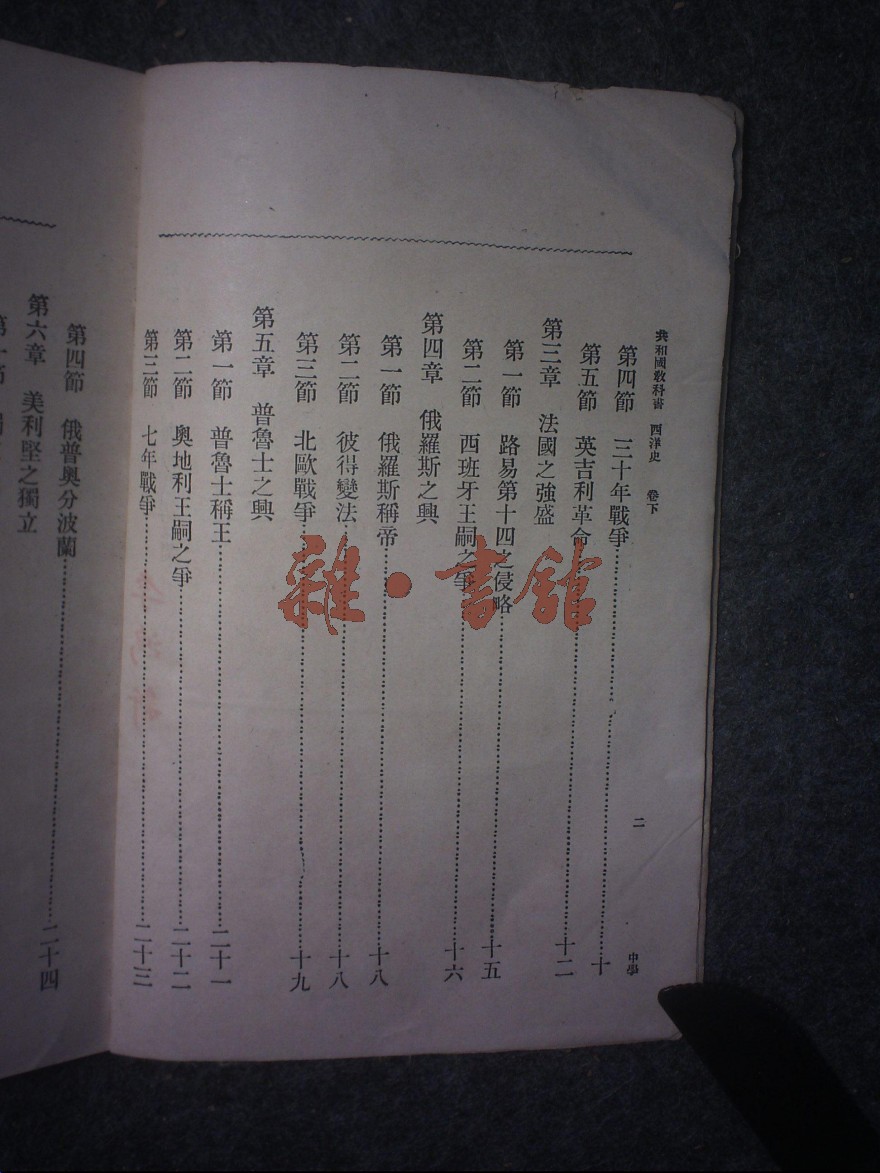 共和國教科書 西洋史 卷下 二 中學
第四節 三十年戰爭 十
第五節 英吉利革命 十二
第三章 法國之強盛
第一節 路易第十四之侵略 十五
第二節 西班牙王嗣之爭 十六
第四章 俄羅斯之興
第一節 俄羅斯稱帝 十八
第二節 彼得變法 十八
第三節 北歐戰爭 十九
第五章 普魯士之興
第一節 普魯士稱王 二十一
第二節 奧地利王嗣之爭 二十二
第三節 七年戰爭 二十三
第四節 俄普奧分波蘭 二十四
第六章 美利堅之獨立
雜·書館